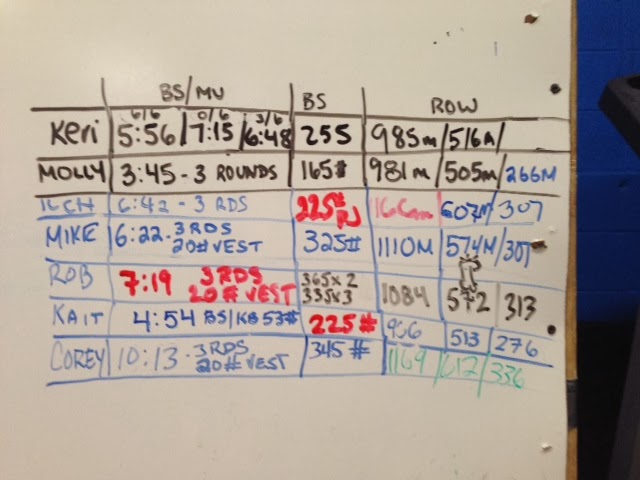 BS/MU BS ROW
6/6 0/6 3/6
Keri 5:56 / 7:15 / 6:48 255 985m / 516m /
MOLLY 3:45 - 3 ROUNDS 165# 981m / 505m / 266M
6:42 - 3 RDS 225# 607M / 307
MIKE 6:22 - 3 RDS 20# VEST 325# 1110M / 574M / 307
ROB 7:19 3 RDS 20# VEST 365x2 335x3 1084 / 572 / 313
KAIT 4:54 BS/KB 53# 225# 513 / 276
COREY 10:13 - 3 RDS 20# VEST 345# 1169 / 612 / 336